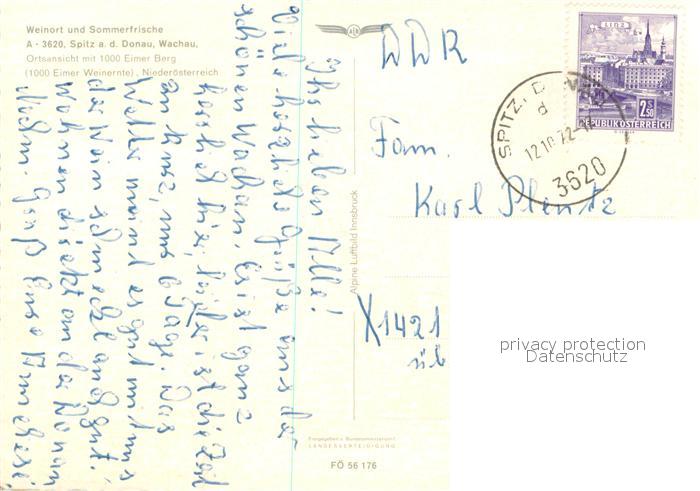 Weinort und Sommerfrische
A - 3620, Spitz a. d. Donau, Wachau,
Ortsansicht mit 1000 Eimer Berg
(1000 Eimer Weinernte), Niederösterreich
Ihr lieben Alle!
Viele herzliche Grüße aus der
schönen Wachau. Es ist ganz
herrlich hier, leider ist die Zeit
zu kurz, nur 6 Tage. Das
Wetter meint es gut mit uns
der Wein schmeckt auch gut.
Wohnen direkt an der Donau
Gruß Eure
Alpine Luftbild Innsbruck
Freigegeben v. Bundesministerium f.
LANDESVERTEIDIGUNG
FÖ 56 176
DDR
Fam.
Karl Plentz
X1421
üb
LINZ
2.50
S
REPUBLIK ÖSTERREICH
SPITZ, D
d
12.10.72-1
3620
privacy protection
Datenschutz